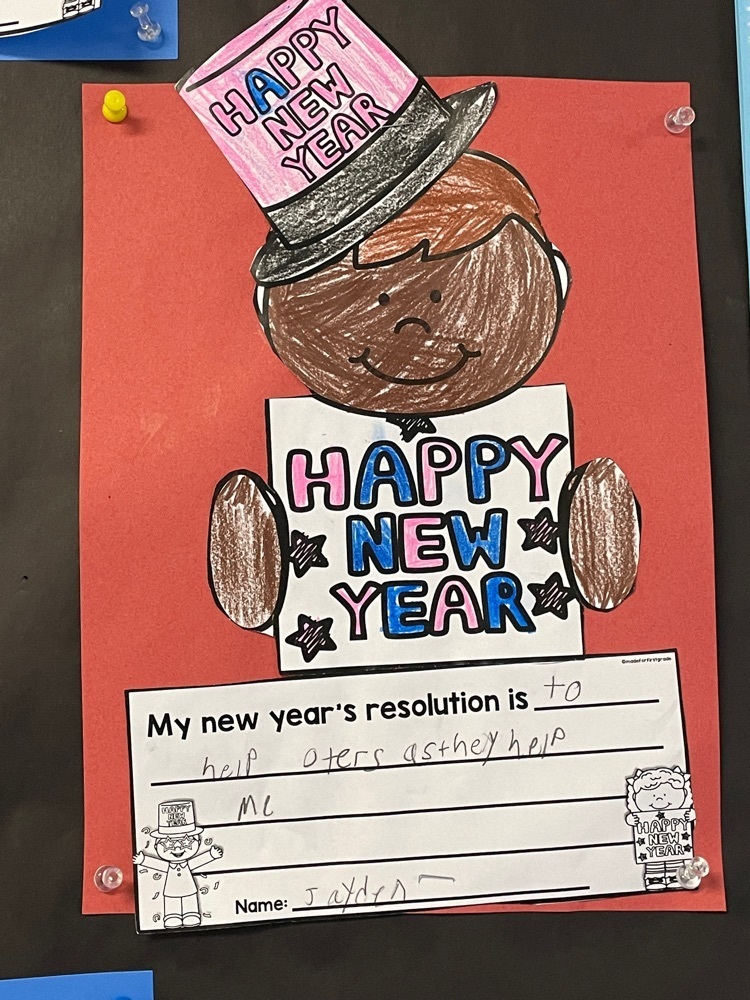 HAPPY
NEW
YEAR
HAPPY
NEW
YEAR
©madeforfirstgrade
My new year's resolution is to
help oters asthey help
me
HAPPY
NEW
YEAR
HAPPY
NEW
YEAR
Name: Jayden